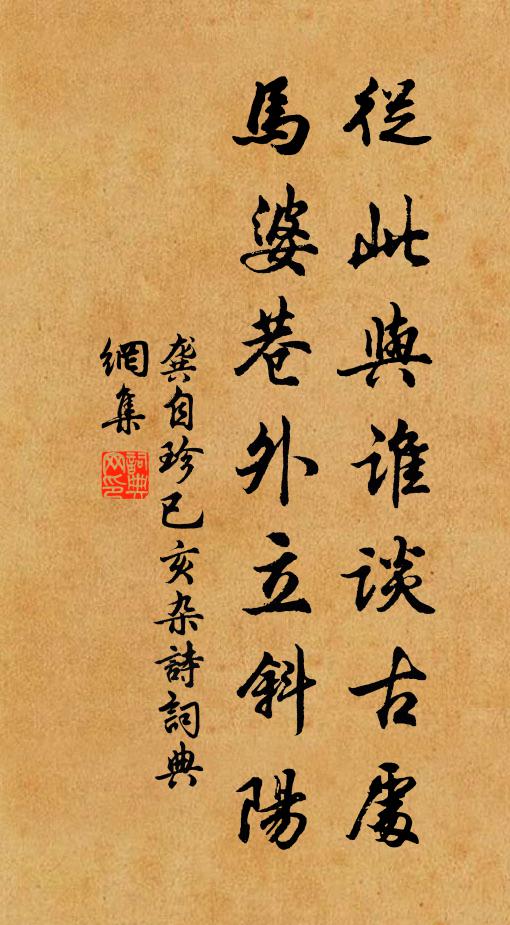 從此與誰談古處
馬婆巷外立斜陽
龔自珍己亥杂詩詞典
網集
詞典
网印